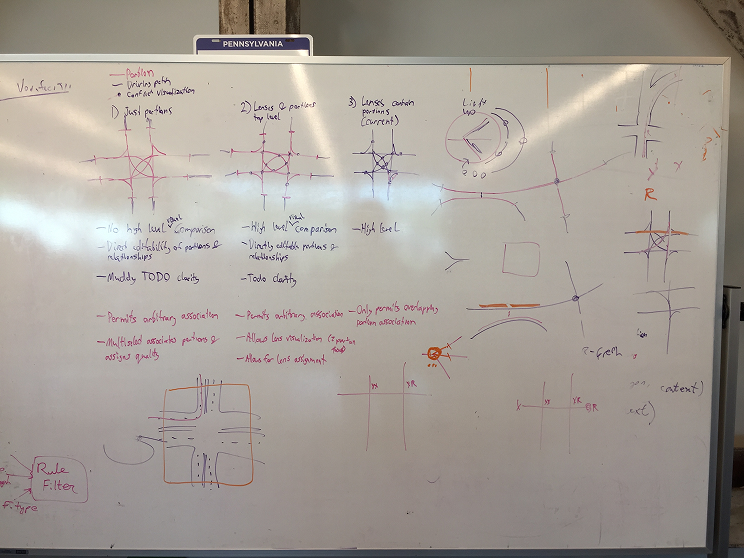 PENNSYLVANIA
Portion
Driving path
Conflict visualization
1) Just portions
2) Lenses & portions
top level
3) Lenses contain
portions
(current)
- No high level visual comparison
- Direct editability of portions &
relationships
- Muddy TODO clarity
- High level visual comparison
- Directly editable portions &
relationships
- Todo clarity
- High level
- Permits arbitrary association
- Multiselect associates portions &
assigns quality
- Permits arbitrary association
- Allows lens visualization
- Allows for lens assignment
- Only permits overlapping
portion association
R
Rule
Filter
F. type
context)